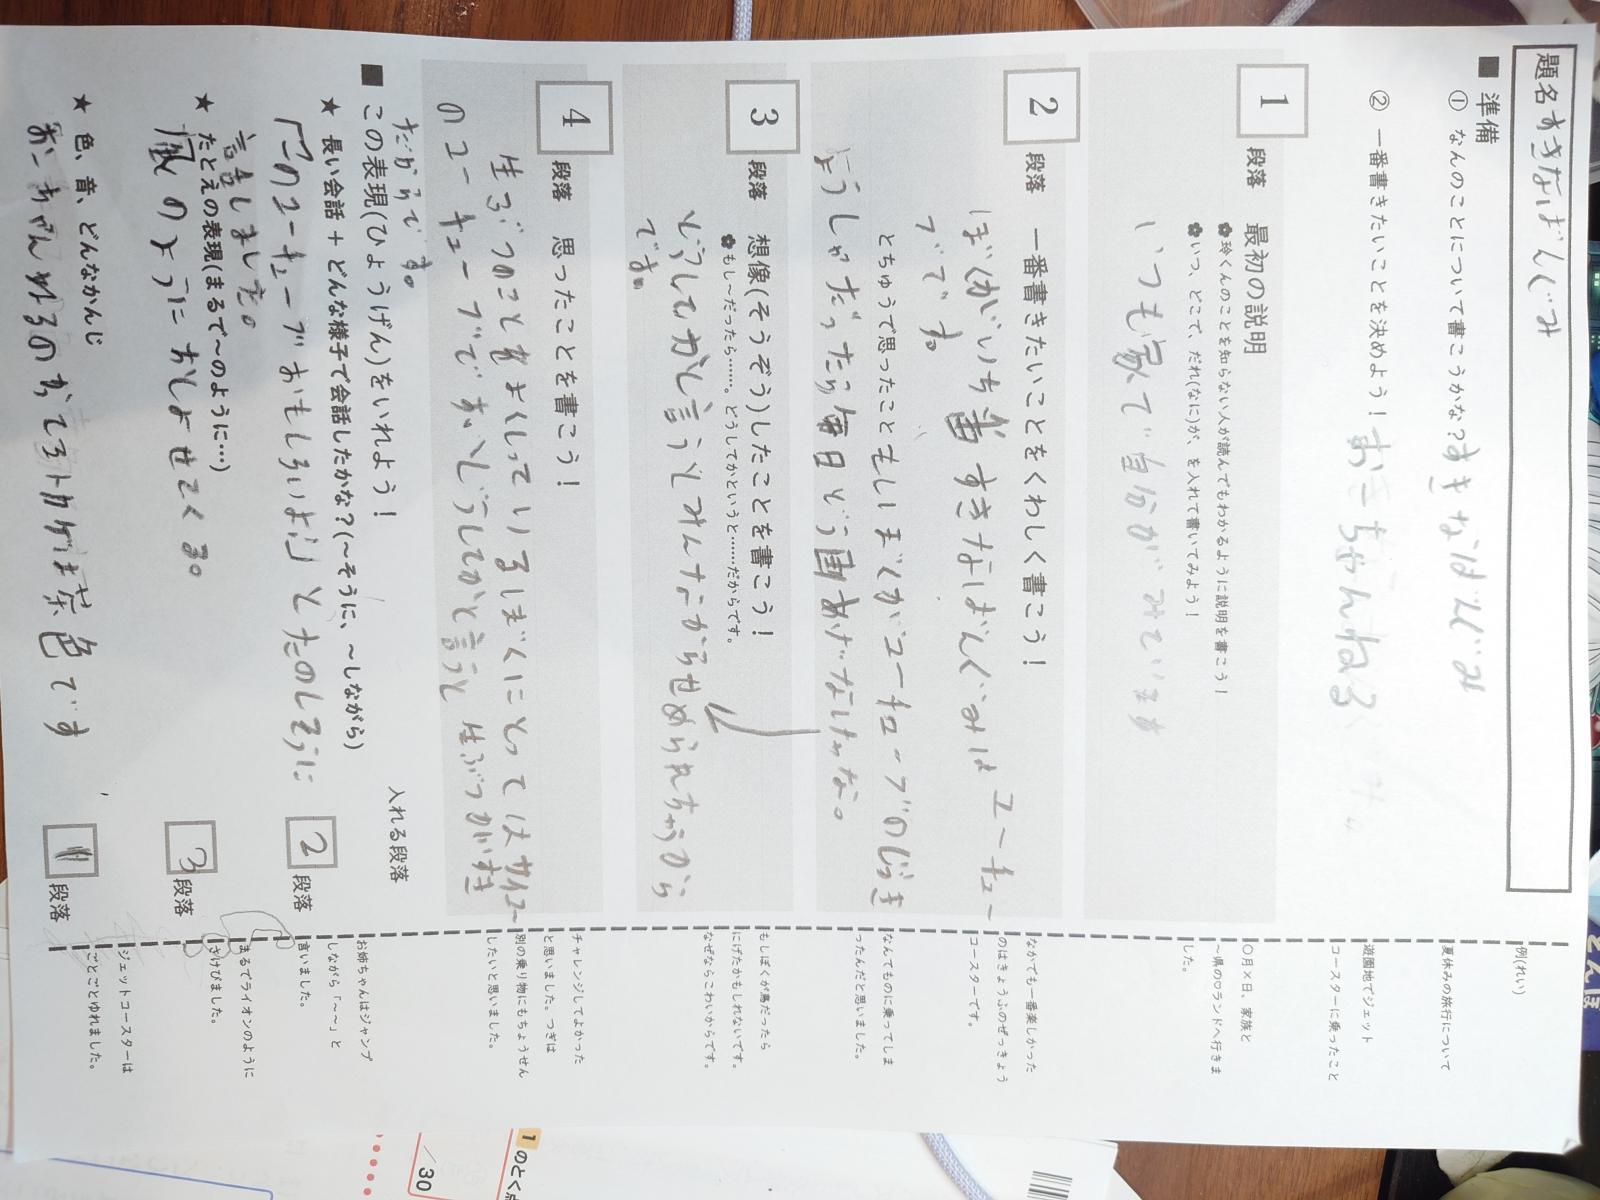 題名 すきなばんぐみ
■ 準備
① なんのことについて書こうかな？すきなばんぐみ
② 一番書きたいことを決めよう！おきちゃんねる
1 段落 最初の説明
✿玲くんのことを知らない人が読んでもわかるように説明を書こう！
✿いつ、どこで、だれ(なに)が、を入れて書いてみよう！
いつも家で自分がみています
2 段落 一番書きたいことをくわしく書こう！
ぼくがいち番すきなばんぐみはユーチュー
ブです。
とちゅうで思ったこともしぼくがユーチューブのじっき
ょうしゃだったら毎日どう画あげなしけゃな。
3 段落 想像(そうぞう)したことを書こう！
✿もし～だったら……。どうしてかというと……だからです。
どうしてかと言うとみんなからせめられちゃうから
です。
4 段落 思ったことを書こう！
生ぶつのことをよくしっているぼくにとってはサイコー
のユーチューブです。どうしてかと言うと生ぶつがすき
だからです。
■ この表現(ひょうげん)をいれよう！
入れる段落
★ 長い会話 + どんな様子で会話したかな？(～そうに、～しながら)
「このユーチューブおもしろいよ」とたのしそうに
言いました。
2 段落
★ たとえの表現(まるで～のように…)
風のようにおしよせてくる。
3 段落
★ 色、音、どんなかんじ
おきちゃんねるのかってるトカゲは茶色です
1 段落
例(れい)
夏休みの旅行について
遊園地でジェット
コースターに乗ったこと
〇月×日、家族と
～県の♡ランドへ行きま
した。
なかでも一番楽しかった
のはきょうふのぜっきょう
コースターです。
なんてものに乗ってしま
ったんだと思いました。
もしぼくが鳥だったら
にげたかもしれないです。
なぜならこわいからです。
チャレンジしてよかった
と思いました。つぎは
別の乗り物にもちょうせん
したいと思いました。
お姉ちゃんはジャンプ
しながら「～～」と
言いました。
まるでライオンのように
さけびました。
ジェットコースターは
ごとごとゆれました。
1 のとく点
／30